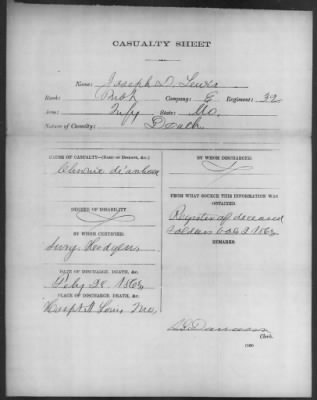 CASUALTY SHEET
Name: Joseph D. Lewis
Rank: Privt Company: E Regiment: 32
Arm: Infy State: Mo.
Nature of Casualty: Death
CAUSE OF CASUALTY—(NAME OF DISEASE, &c.)
Chronic diarrhoea
DEGREE OF DISABILITY
BY WHOM CERTIFIED
Surg. Hodgens
DATE OF DISCHARGE, DEATH, &c.
Feby 28 1863
PLACE OF DISCHARGE, DEATH, &c.
Hospt St Louis Mo,
BY WHOM DISCHARGED.
FROM WHAT SOURCE THIS INFORMATION WAS OBTAINED.
Register of deceased
Soldiers
REMARKS.
Clerk.